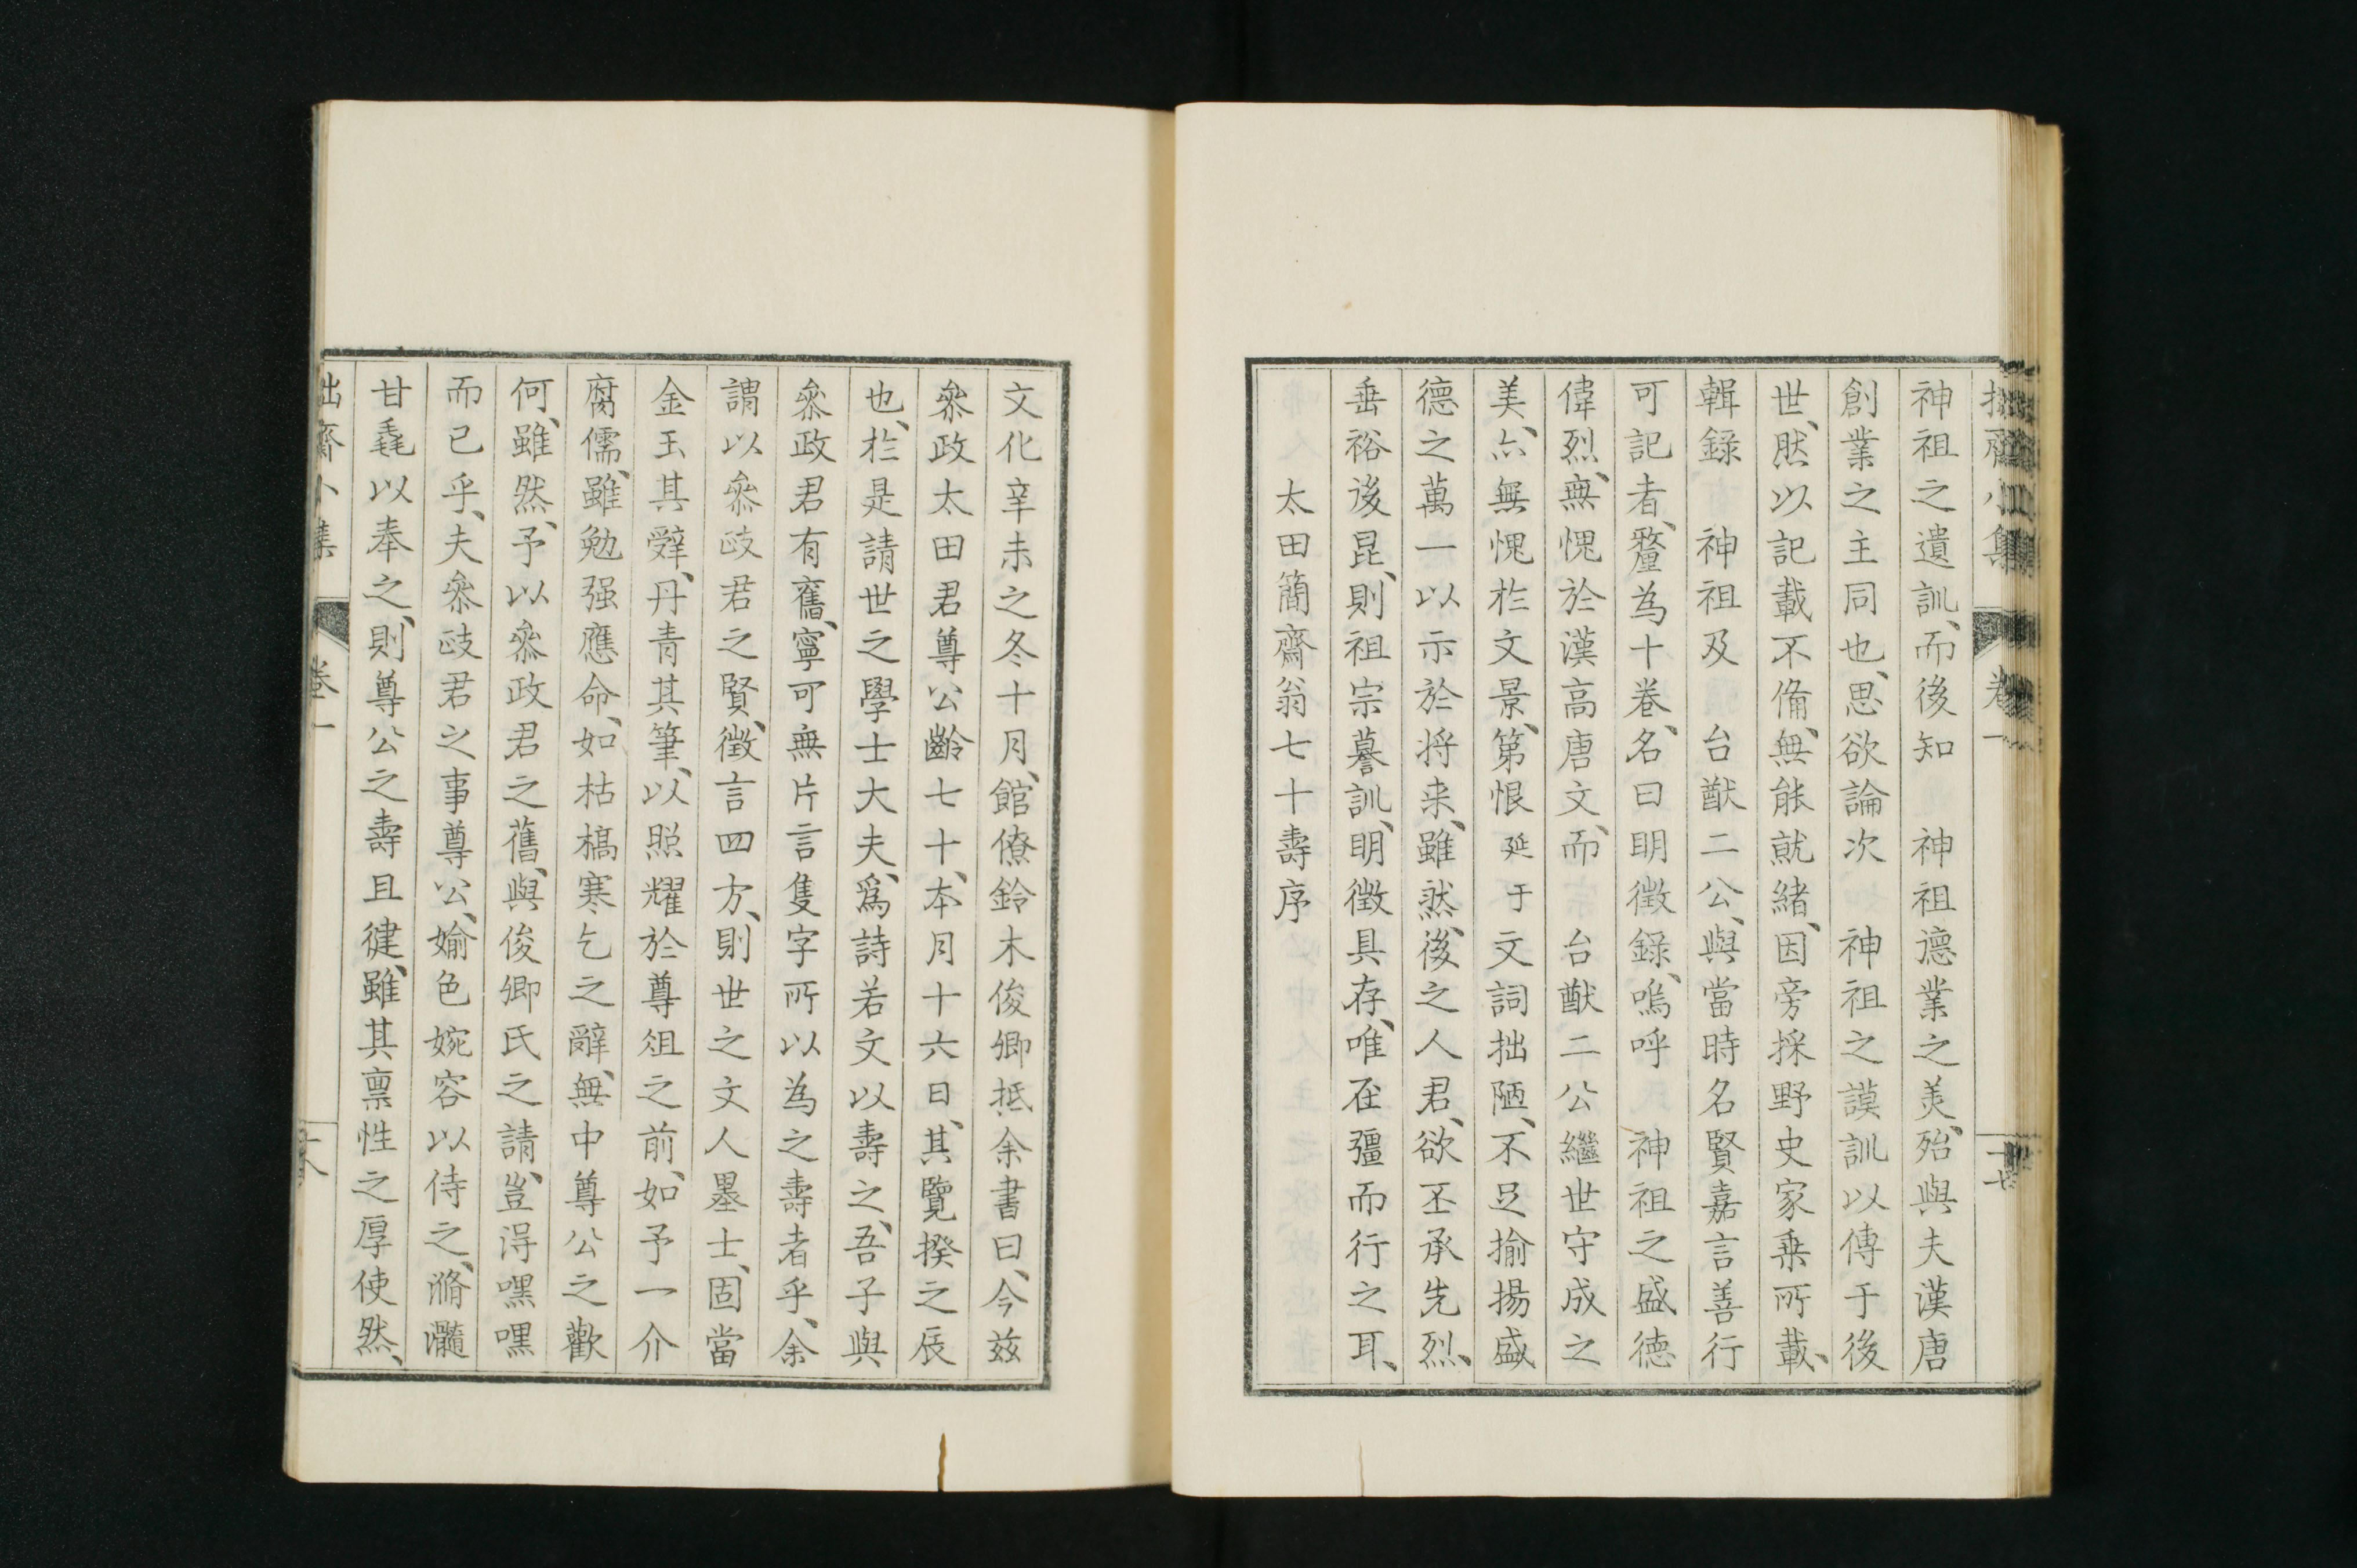 神祖之遺訓、而後知　神祖德業之美、殆與夫漢唐
創業之主同也、思欲論次　神祖之謨訓以傳于後
世、然以記載不備、無能就緒、因旁採野史家乗所載、
輯録　神祖及　台猷二公、與當時名賢嘉言善行
可記者、釐為十卷、名曰明徴録、嗚呼　神祖之盛德
偉烈、無愧於漢高唐文、而　台猷二公繼世守成之
美、亦無愧於文景、第恨延于文詞拙陋、不足揄揚盛
德之萬一以示於将来、雖然、後之人君、欲丕承先烈、
垂裕後昆、則祖宗謩訓、明徴具存、唯在彊而行之耳、
太田簡齋翁七十壽序
卷一
十七
文化辛未之冬十月、館僚鈴木俊卿抵余書曰、今兹
叅政太田君尊公齡七十、本月十六日、其覽揆之辰
也、於是請世之學士大夫、爲詩若文以壽之、吾子與
叅政君有舊、寧可無片言隻字所以為之壽者乎、余
謂以叅政君之賢、徴言四方、則世之文人墨士、固當
金玉其辭、丹青其筆、以照耀於尊俎之前、如予一介
腐儒、雖勉强應命、如枯槁寒乞之辭、無中尊公之歡
何、雖然、予以叅政君之舊、與俊卿氏之請、豈得嘿嘿
而已乎、夫叅政君之事尊公、婾色婉容以侍之、滫瀡
甘毳以奉之、則尊公之壽且健、雖其禀性之厚使然、
拙齋小集
卷一